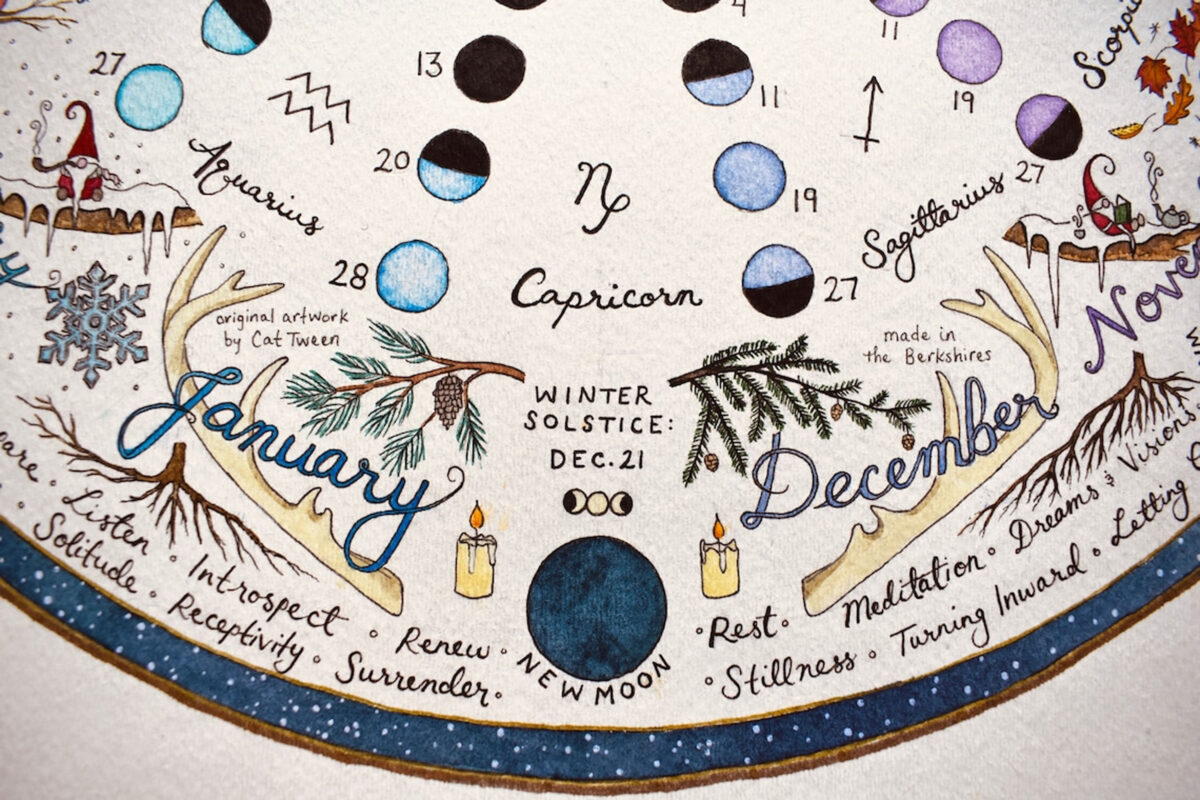 4
11
13
11
27
19
Aquarius
20
19
27
Sagittarius
28
Capricorn
27
original artwork
by Cat Tween
made in
the Berkshires
January
WINTER
SOLSTICE:
DEC. 21
December
Listen • Introspect • Renew •
Solitude • Receptivity • Surrender •
NEW MOON
• Rest • Meditation • Dreams & Visions
• Stillness • Turning Inward • Letting